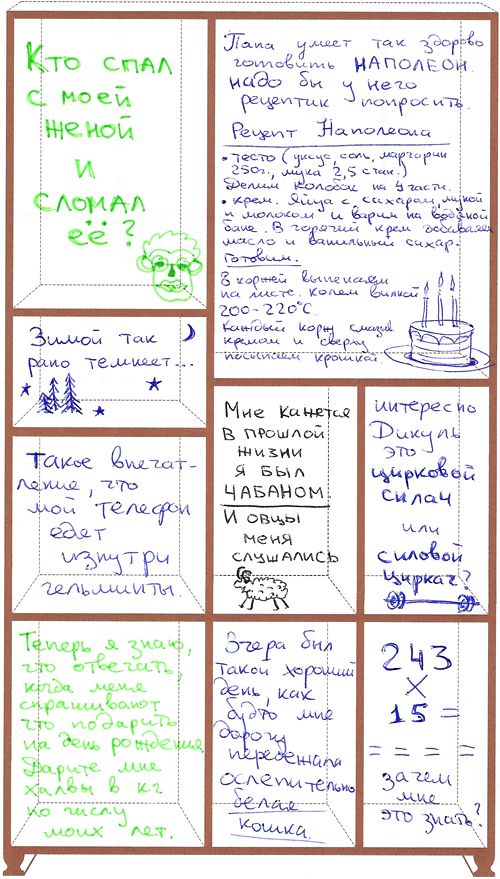 Кто спал
с моей
женой
и
сломал
её?
Папа умеет так здорово
готовить НАПОЛЕОН.
надо бы у него
рецептик попросить.
Рецепт Наполеона
• тесто (уксус, соль, маргарин
250г., мука 2,5 стак.)
Делим колобок на 4 части.
• крем. Яйца с сахаром, мукой
и молоком и варим на водяной
бане. В горячий крем добавляем
масло и ванильный сахар.
Готовим.
8 коржей выпекаем
на листе. Колем вилкой
200-220°С.
Каждый корж смазыв.
кремом и сверху
посыпаем крошкой
Зимой так
рано темнеет...
Такое впечат-
ление, что
мой телефон
едят
изнутри
гельминты.
Мне кажется
в прошлой
жизни
я был
ЧАБАНОМ.
И овцы
меня
слушались
интересно
Дикуль
это
цирковой
силач
или
силовой
циркач?
Теперь я знаю,
что отвечать,
когда меня
спрашивают
что подарить
на день рождения.
Дарите мне
халвы в кг
по числу
моих лет.
Вчера был
такой хороший
день, как
будто мне
дорогу
перебежала
ослепительно
белая
кошка.
243
×
15 =
= = = = =
зачем
мне
это знать?